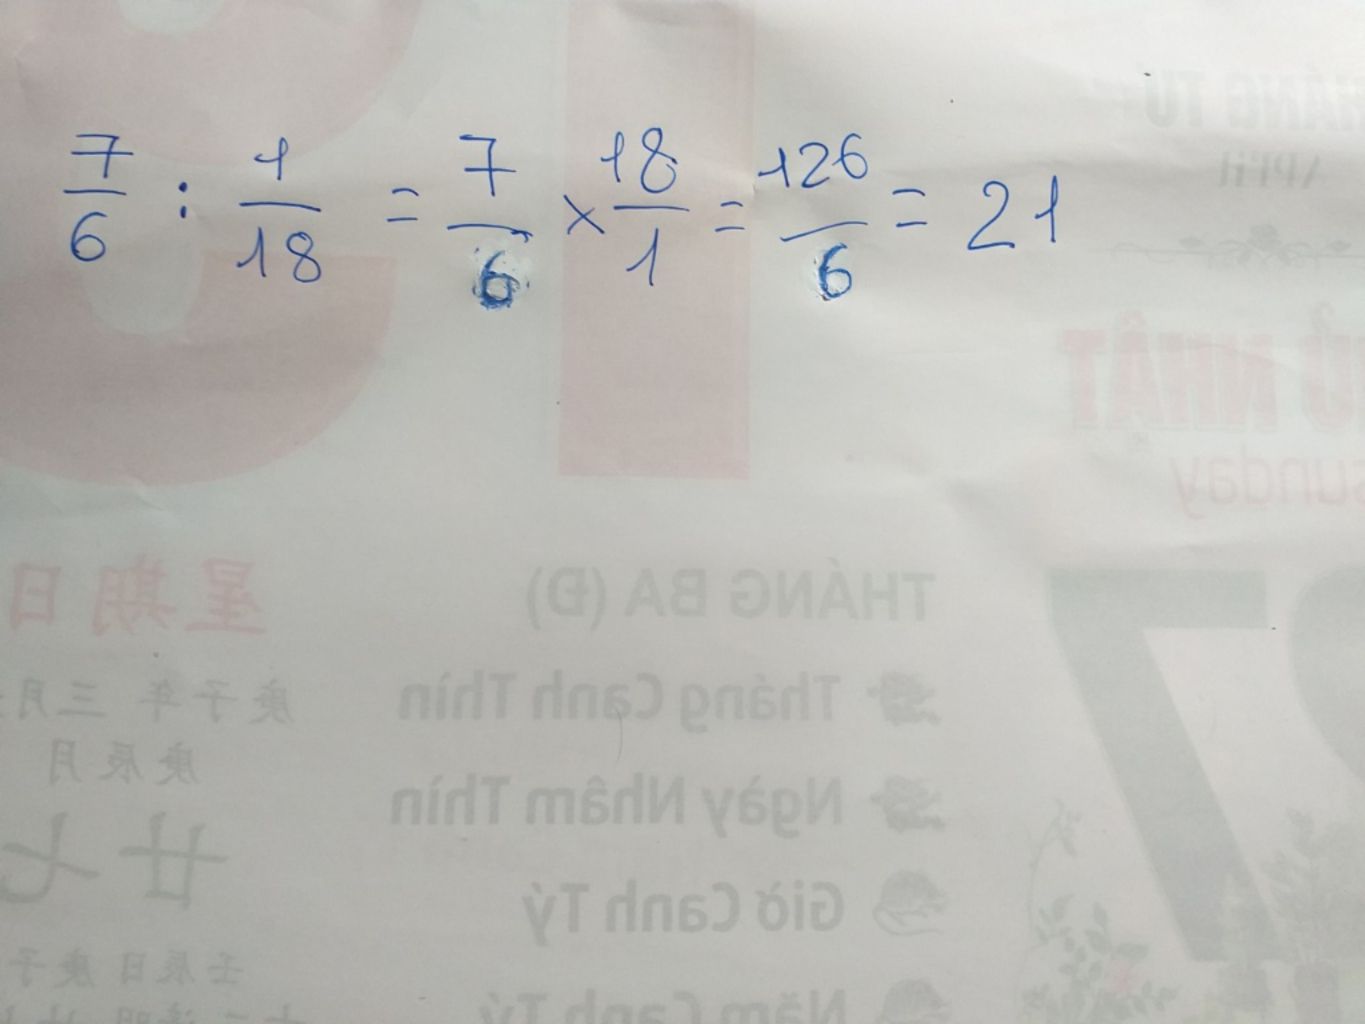 7/6 : 1/18 = 7/6 × 18/1 = 126/6 = 21
THÁNG TƯ
APRIL
CHỦ NHẬT
sunday
星期日
THÁNG BA (Đ)
庚子年 三月
Tháng Canh Thìn
庚辰月
Ngày Nhâm Thìn
廿七
Giờ Canh Tý
壬辰日 庚子
Năm Canh Tý